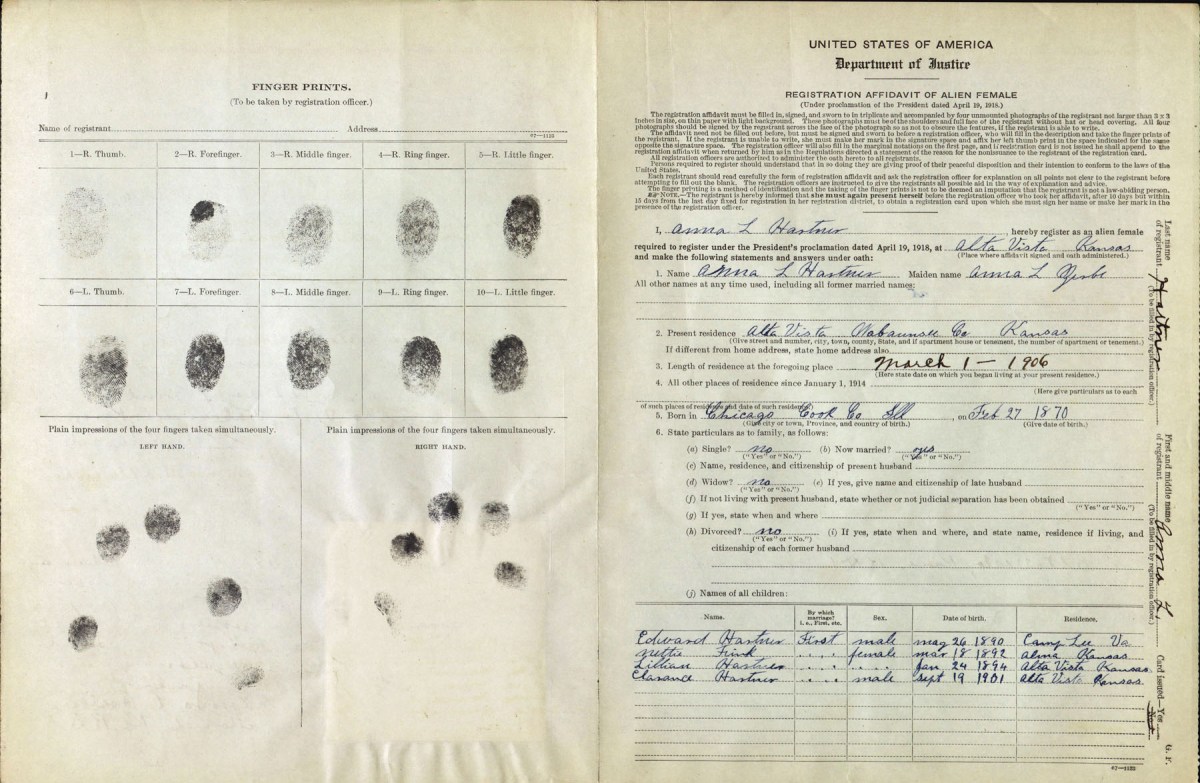 FINGER PRINTS.
(To be taken by registration officer.)
Name of registrant Address
67—1132
1—R. Thumb. 2—R. Forefinger. 3—R. Middle finger. 4—R. Ring finger. 5—R. Little finger.
6—L. Thumb. 7—L. Forefinger. 8—L. Middle finger. 9—L. Ring finger. 10—L. Little finger.
Plain impressions of the four fingers taken simultaneously.
LEFT HAND.
Plain impressions of the four fingers taken simultaneously.
RIGHT HAND.
UNITED STATES OF AMERICA
Department of Justice
REGISTRATION AFFIDAVIT OF ALIEN FEMALE
(Under proclamation of the President dated April 19, 1918.)
The registration affidavit must be filled in, signed, and sworn to in triplicate and accompanied by four unmounted photographs of the registrant not larger than 3 x 3
inches in size, on thin paper with light background. Three photographs must be of the shoulders and full face of the registrant without hat or head covering. All four
photographs should be signed by the registrant across the face of the photograph so as not to obscure the features, if the registrant is able to write.
The affidavit need not be filled out before, but must be signed and sworn to before a registration officer, who will fill in the description and take the finger prints of
the registrant. If the registrant is unable to write, she must make her mark in the signature space and affix her left thumb print in the space indicated for the same
opposite the signature space. The registration officer will also fill in the marginal notations on the first page, and if registration card is not issued he shall append to the
registration affidavit when returned by him as in the Regulations directed a statement of the reason for the nonissuance to the registrant of the registration card.
All registration officers are authorized to administer the oath hereto to all registrants.
Persons required to register should understand that in so doing they are giving proof of their peaceful disposition and their intention to conform to the laws of the
United States.
Each registrant should read carefully the form of registration affidavit and ask the registration officer for explanation on all points not clear to the registrant before
attempting to fill out the blank. The registration officers are instructed to give the registrants all possible aid in the way of explanation and advice.
The finger printing is a method of identification and the taking of the finger prints is not to be deemed an imputation that the registrant is not a law-abiding person.
NOTE.—If the registrant is hereby informed that she must again present herself before the registration officer who took her affidavit, after 10 days but within
15 days from the last day fixed for registration in her registration district, to obtain a registration card upon which she must sign her name or make her mark in the
presence of the registration officer.
I, Anna L Hartner, hereby register as an alien female
required to register under the President's proclamation dated April 19, 1918, at Alta Vista Kansas
and make the following statements and answers under oath: (Place where affidavit signed and oath administered.)
1. Name Anna L Hartner Maiden name Anna L
All other names at any time used, including all former married names:
2. Present residence Alta Vista Wabaunsee Co Kansas
(Give street and number, city, town, county, State, and if apartment house or tenement, the number of apartment or tenement.)
If different from home address, state home address also
3. Length of residence at the foregoing place March 1 — 1906
(Here state date on which you began living at your present residence.)
4. All other places of residence since January 1, 1914
(Here give particulars as to each
of such places of residence and date of such residence.)
5. Born in Chicago Cook Co Ill, on Feb 27 1870
(Give city or town, Province, and country of birth.) (Give date of birth.)
6. State particulars as to family, as follows:
(a) Single? no (b) Now married? yes
("Yes" or "No.") ("Yes" or "No.")
(c) Name, residence, and citizenship of present husband
(d) Widow? no (e) If yes, give name and citizenship of late husband
("Yes" or "No.")
(f) If not living with present husband, state whether or not judicial separation has been obtained
("Yes" or "No.")
(g) If yes, state when and where
(h) Divorced? no (i) If yes, state when and where, and state name, residence if living, and
("Yes" or "No.")
citizenship of each former husband
(j) Names of all children:
Name. By which marriage? i. e., First, etc. Sex. Date of birth. Residence.
Edward Hartner First male may 26 1890 Camp Lee Va
Nettie Frink .... female mar 18 1892 Alma Kansas
Lillian Hartner .... .... Jan. 24 1894 Alta Vista Kansas
Clarance Hartner .... male Sept 19 1901 Alta Vista Kansas
67—1132
Last name of registrant Hartner
(To be filled in by registration officer.)
First and middle name of registrant Anna L
(To be filled in by registration officer.)
Card issued—Yes
G. F.